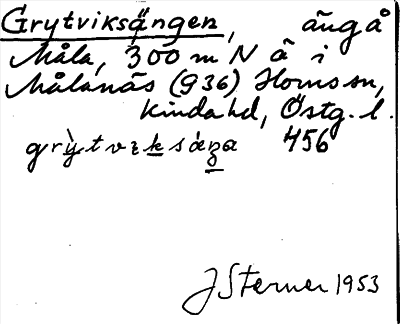 Grytviksängen, äng å
Måla, 300 m N å i
Målanäs (936) Horns sn,
Kinda hd, Östg. l.
grỳtvıksáŋa 456
J Sterner 1953